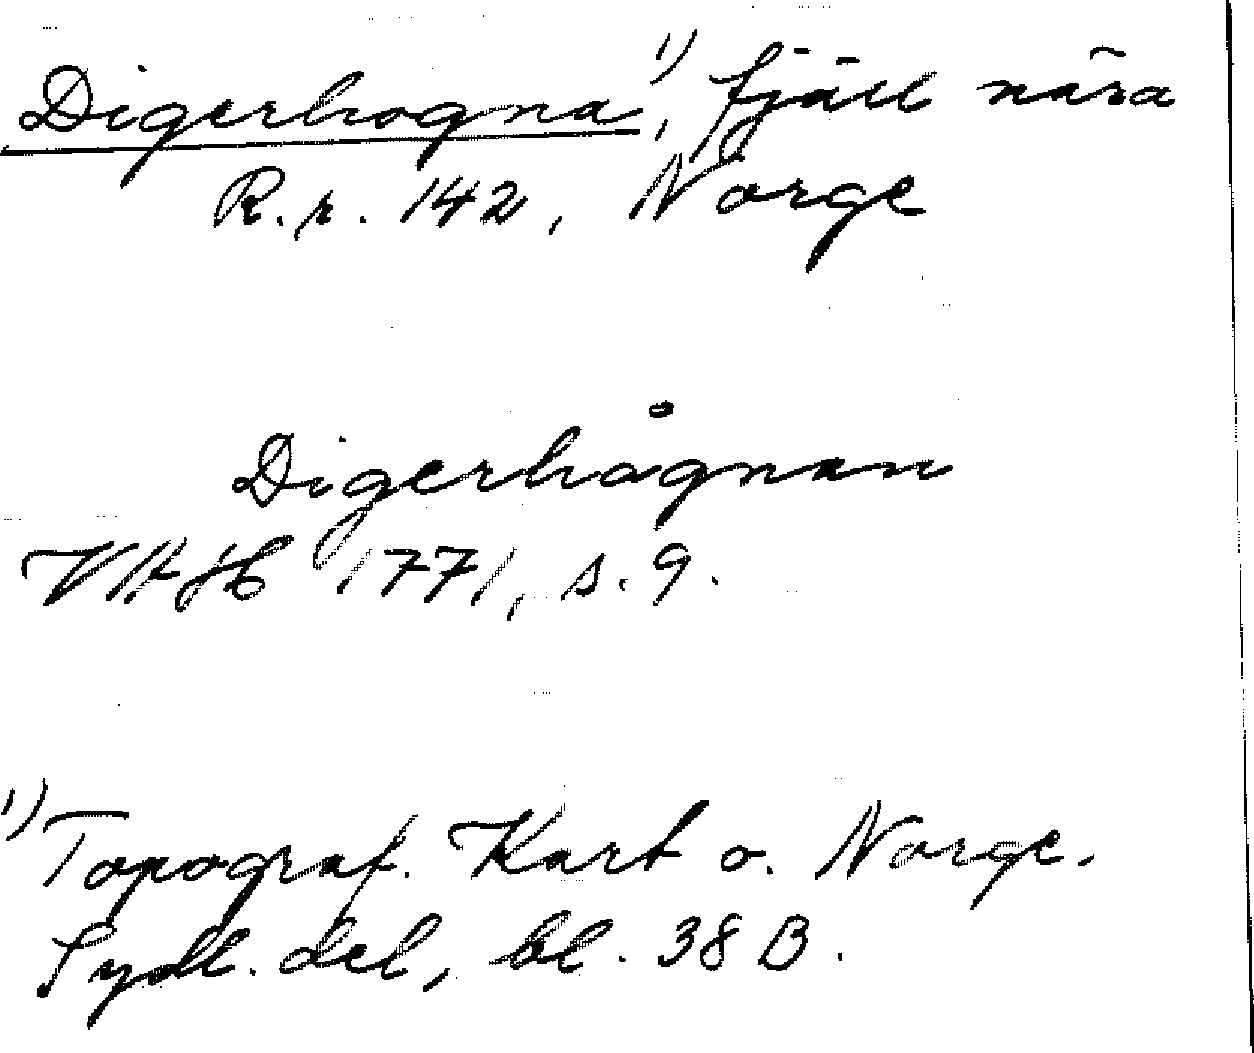 Digerhogna ¹⁾, fjäll nära
R.r. 142, Norge
Digerhågnan
1771, s. 9.
¹⁾ Topograf. Kart o. Norge.
Sydl. del, bl. 38 B.